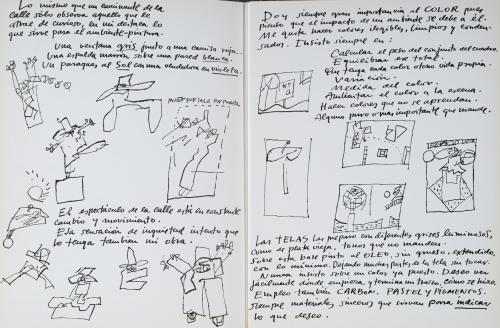 Lo mismo que un caminante de la
calle sólo observa aquello que le
atrae de curioso, en mi destaca lo
que sirve para el ambiente-pintura.
Una ventana gris junto a una camisa roja.
Una espalda marron, sobre una pared blanca.
Un paraguas al Sol con una vendedora en violeta.
El espectáculo de la calle está en constante
cambio y movimiento.
Esa sensación de inquietud intento que
lo tenga también mi obra.
Doy siempre gran importancia al COLOR pues
pienso que el impacto de un ambiente se debe a él.
Me gusta hacer colores elegibles, limpios y conden-
sados. Insisto siempre en:
Calcular el peso del conjunto del cuadro.
Equilibrar ese total.
Que tenga cada color o tono vida propia.
Variación.
Medida del color.
Ambientar el color a la escena.
Hacer colores que no se aprendan.
Alguno puro o mas importante que mande.
Las TELAS las preparo con diferentes grises luminosos,
como de plata vieja, tonos que no manden.
Sobre esta base pinto al OLEO, sin grueso, extendido,
con lo mínimo. Dejando muchas partes de la tela sin tocar.
Nunca insisto sobre un color ya puesto. Deseo ver
fácilmente donde empieza, y termina un trazo, como se hizo.
Empleo también CARBON, PASTEL y PIGMENTOS.
Siempre materiales sinceros que sirvan para indicar
lo que deseo.